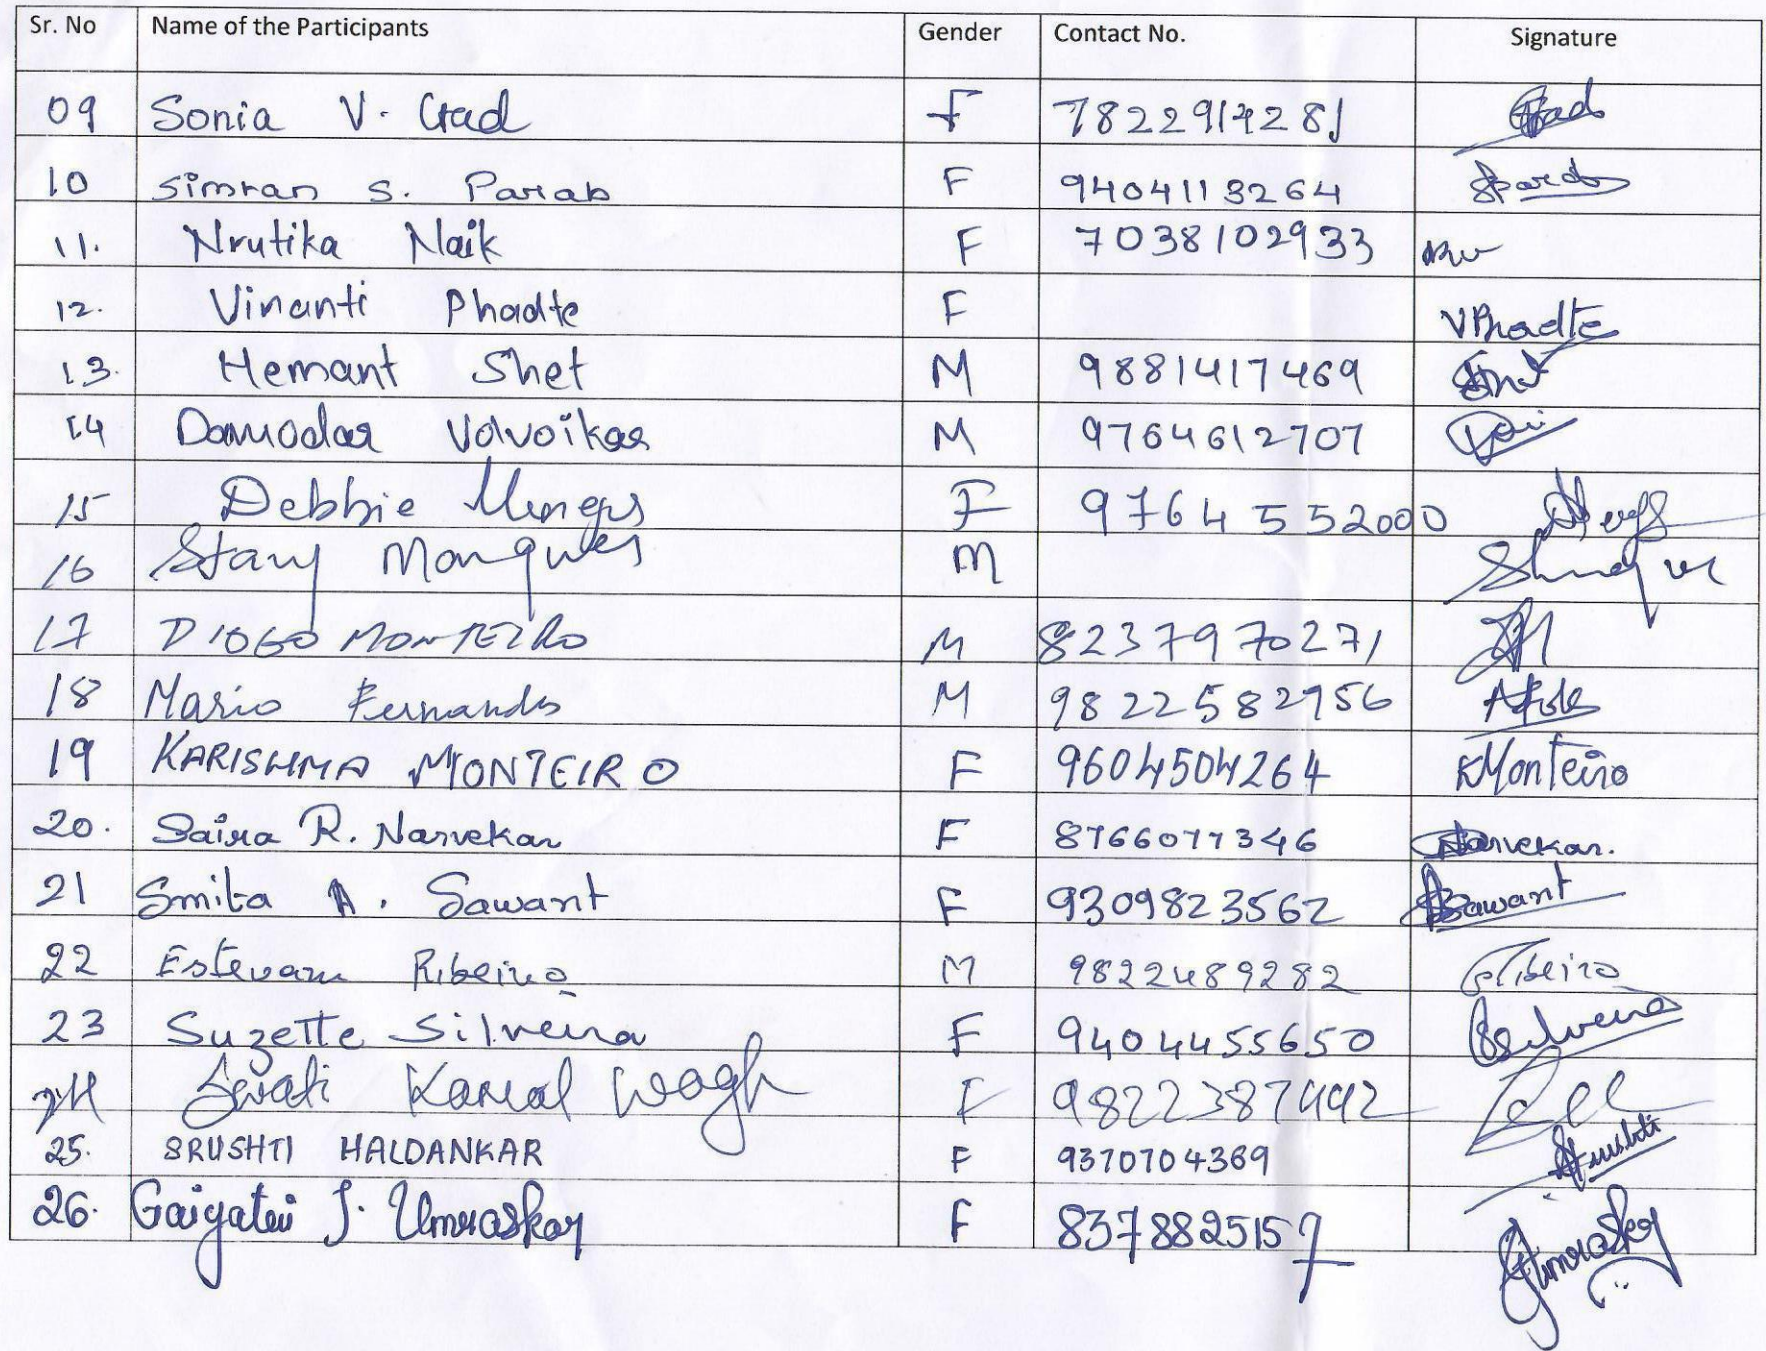 Sr. No Name of the Participants Gender Contact No. Signature
09 Sonia V. Gad F 7822914281 Gad
10 Simran S. Parab F 9404113264
11. Nrutika Naik F 7038102933
12. Vinanti Phadte F VPhadte
13. Hemant Shet M 9881417469
14 Damodar Volvoikar M 9764612707
15 Debbie F 9764552000
16 Stany Monques M
17 DIOGO MONTEIRO M 8237970271
18 Mario Fernandes M 9822582956
19 KARISHMA MONTEIRO F 9604504264 KMonteiro
20. Saira R. Narvekar F 8766077346 Narvekar.
21 Smita A. Sawant F 9309823562 Sawant
22 Estevam Ribeiro M 9822489282 Ribeiro
23 Suzette Silveira F 9404455650 Silveira
24 Swati Kamal Wagh F
25. SRUSHTI HALDANKAR F 9370704369 Srushti
26. Gaiyatri J. Umraskar F 8378825157 Umraskar